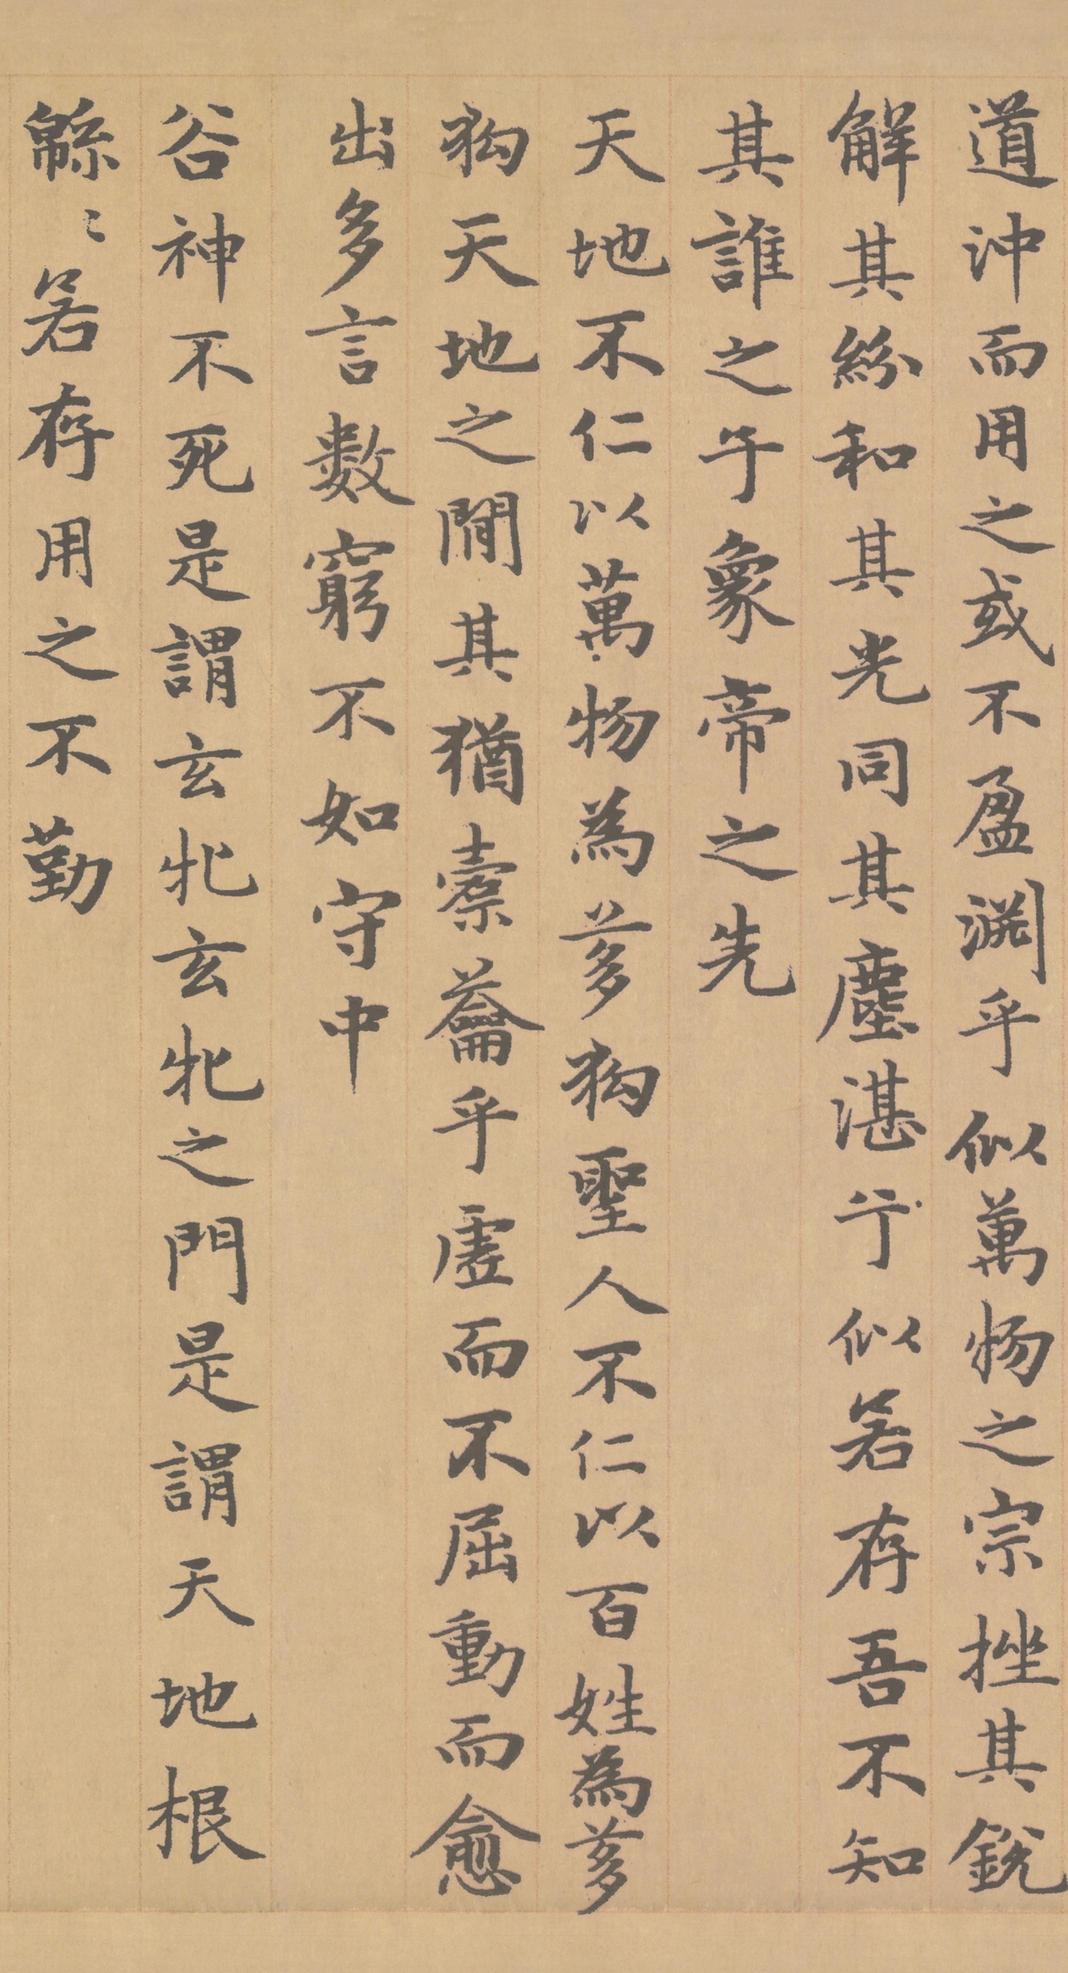 道沖而用之或不盈淵乎似萬物之宗挫其銳
解其紛和其光同其塵湛兮似若存吾不知
其誰之子象帝之先
天地不仁以萬物為芻狗聖人不仁以百姓為芻
狗天地之閒其猶橐蘥乎虛而不屈動而愈
出多言數窮不如守中
谷神不死是謂玄牝玄牝之門是謂天地根
緜〻若存用之不勤